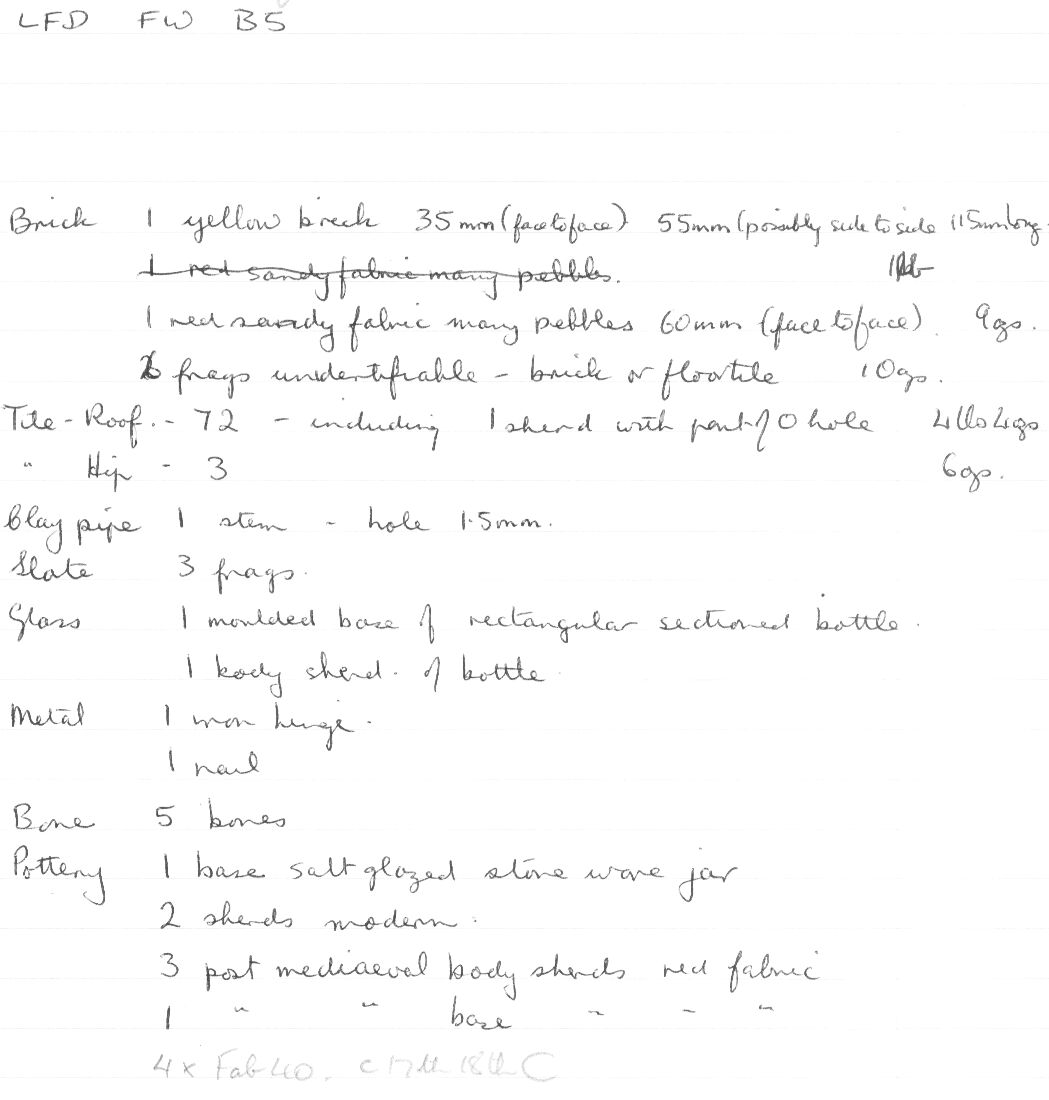 LFD FW B5
Brick 1 yellow brick 35mm (face to face) 55mm (possibly side to side 115mm long.
1 red sandy fabric many pebbles.
1 red sandy fabric many pebbles 60mm (face to face). 9ozs.
frags unidentifiable - brick or floortile 10ozs.
Tile - Roof. - 72 - including 1 sherd with part of O hole 4lbs 4ozs
" Hip - 3 6ozs.
Clay pipe 1 stem - hole 1.5mm.
Slate 3 frags.
Glass 1 moulded base of rectangular sectioned bottle.
1 body sherd. of bottle.
Metal 1 iron hinge.
1 nail
Bone 5 bones
Pottery 1 base salt glazed stone ware jar
2 sherds modern.
3 post mediaeval body sherds red fabric
1 " " base " " "
4 x Fab 40. c 17th 18th C